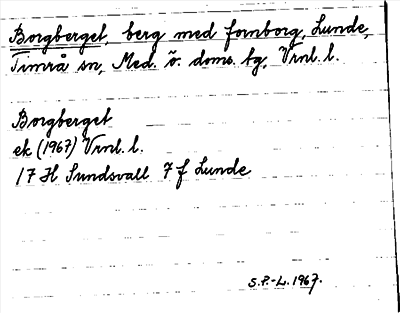 Borgberget, berg med fornborg, Lunde,
Timrå sn, Med. ö. doms. tg, Vrnl. l.
Borgberget
ek (1967) Vrnl. l.
17 H Sundsvall 7 f Lunde
S.P.-L. 1967.